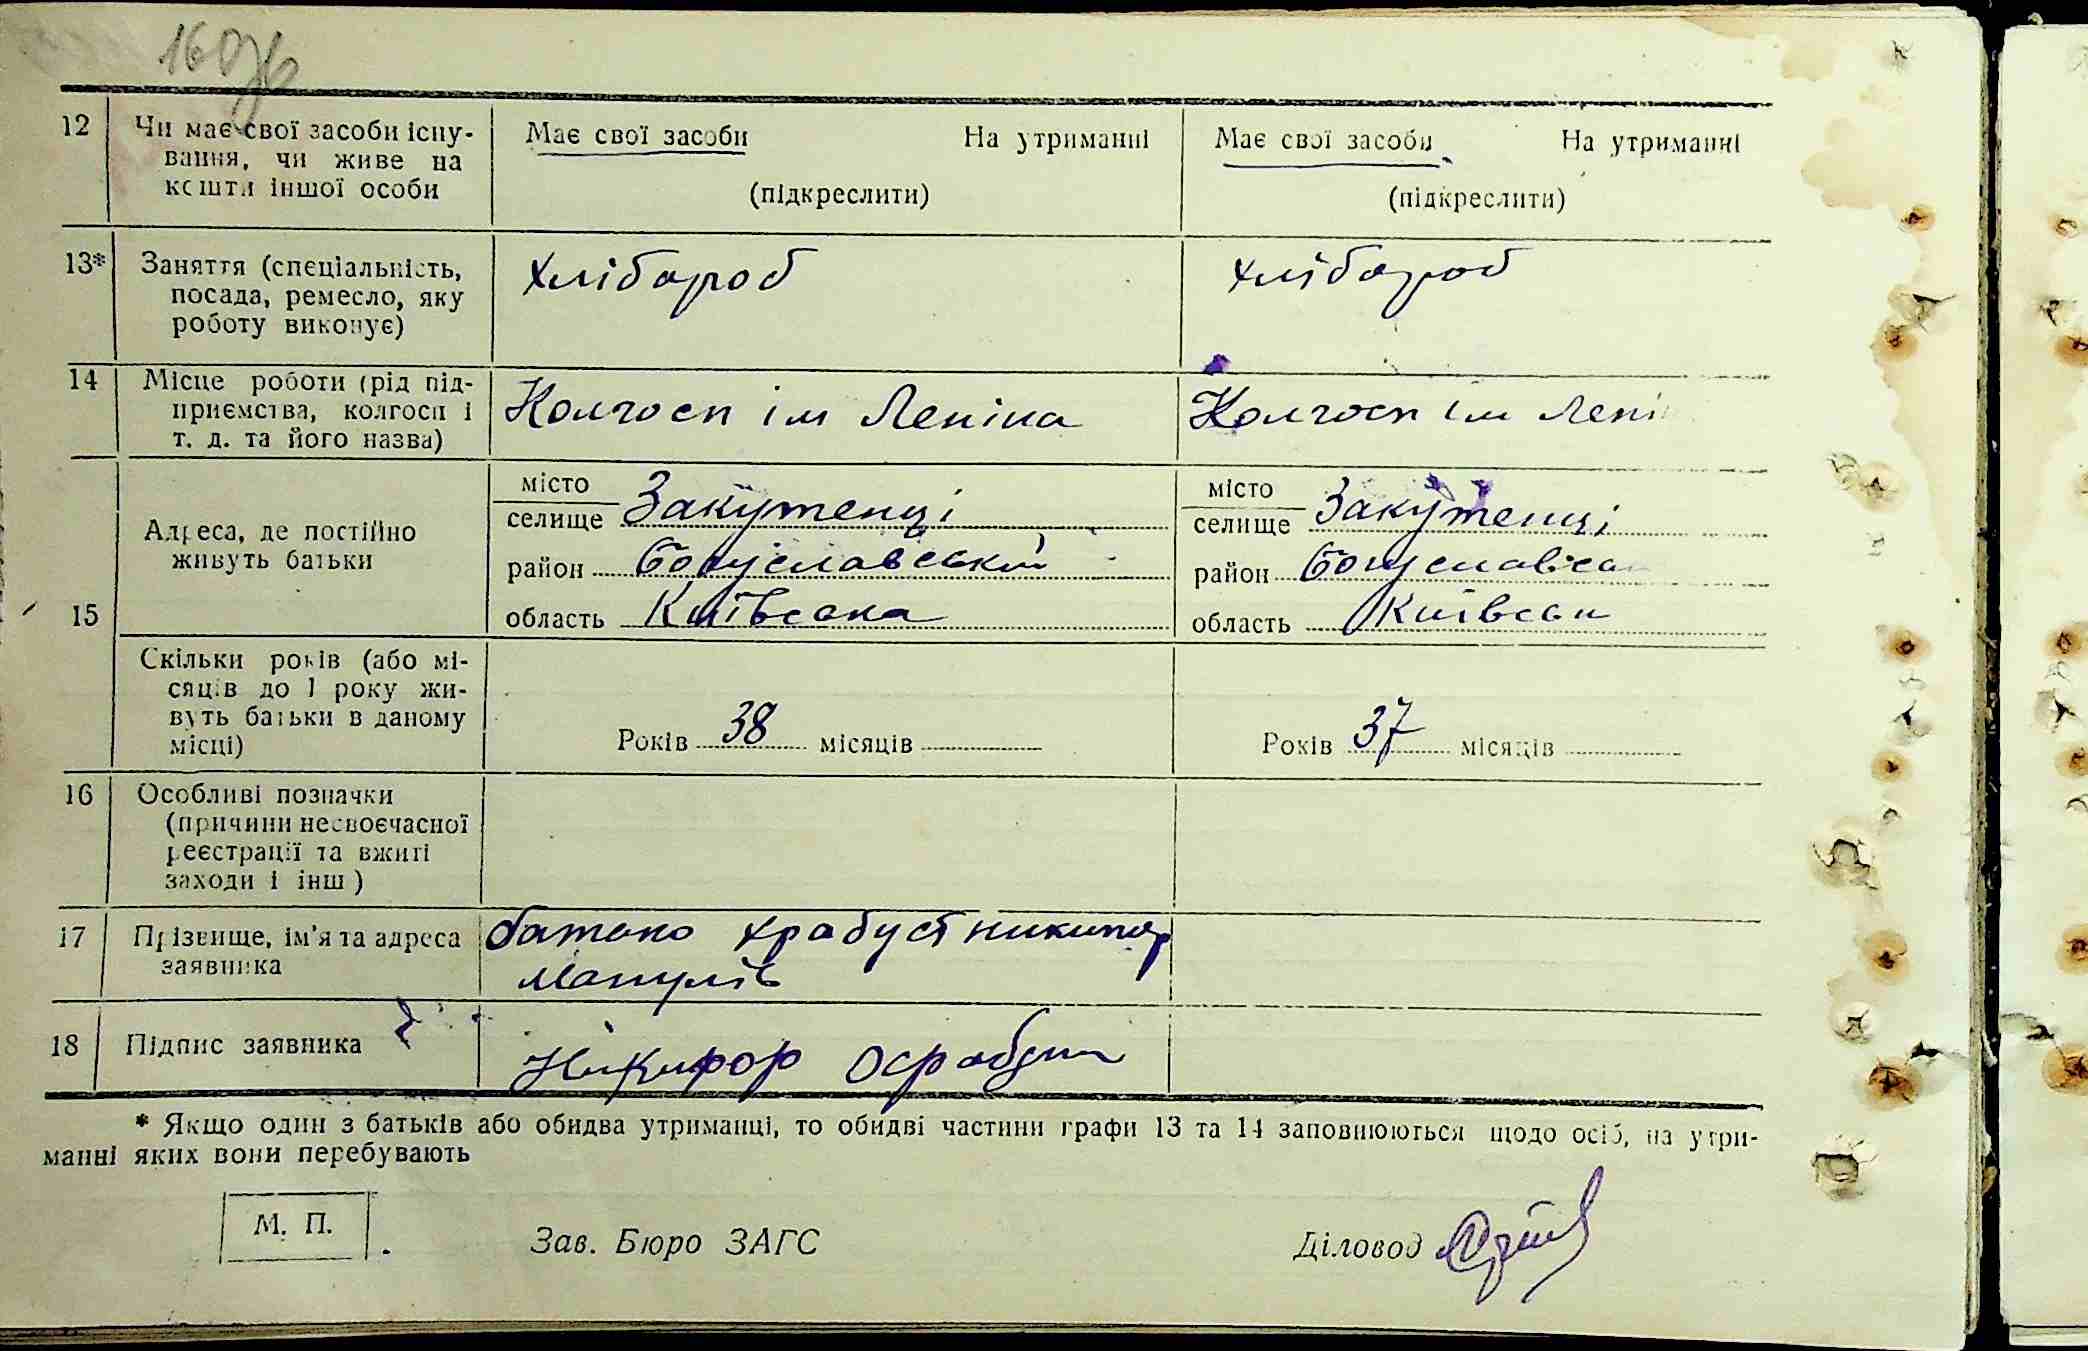 160зв
12 Чи має свої засоби існу- Має свої засоби На утриманні Має свої засоби На утриманні
вання, чи живе на
кошти іншої особи (підкреслити) (підкреслити)
13* Заняття (спеціальність, хлібароб хлібароб
посада, ремесло, яку
роботу виконує)
14 Місце роботи (рід під- Колгосп ім Леніна Колгосп ім Лені
приємства, колгосп і
т. д. та його назва)
місто місто
селище Закутенці селище Закутенці
Адреса, де постійно
живуть батьки район Богуславський район Богуславська
15 область Київська область Київськ
Скільки років (або мі-
сяців до 1 року жи-
вуть батьки в даному
місці) Років 38 місяців Років 37 місяців
16 Особливі позначки
(причини несвоєчасної
реєстрації та вжиті
заходи і інш)
17 Прізвище, ім'я та адреса батько храбуст никипор
заявника
18 Підпис заявника Никифор
* Якщо один з батьків або обидва утриманці, то обидві частини графи 13 та 14 заповнюються щодо осіб, на утри-
манні яких вони перебувають
М. П.
Зав. Бюро ЗАГС Діловод